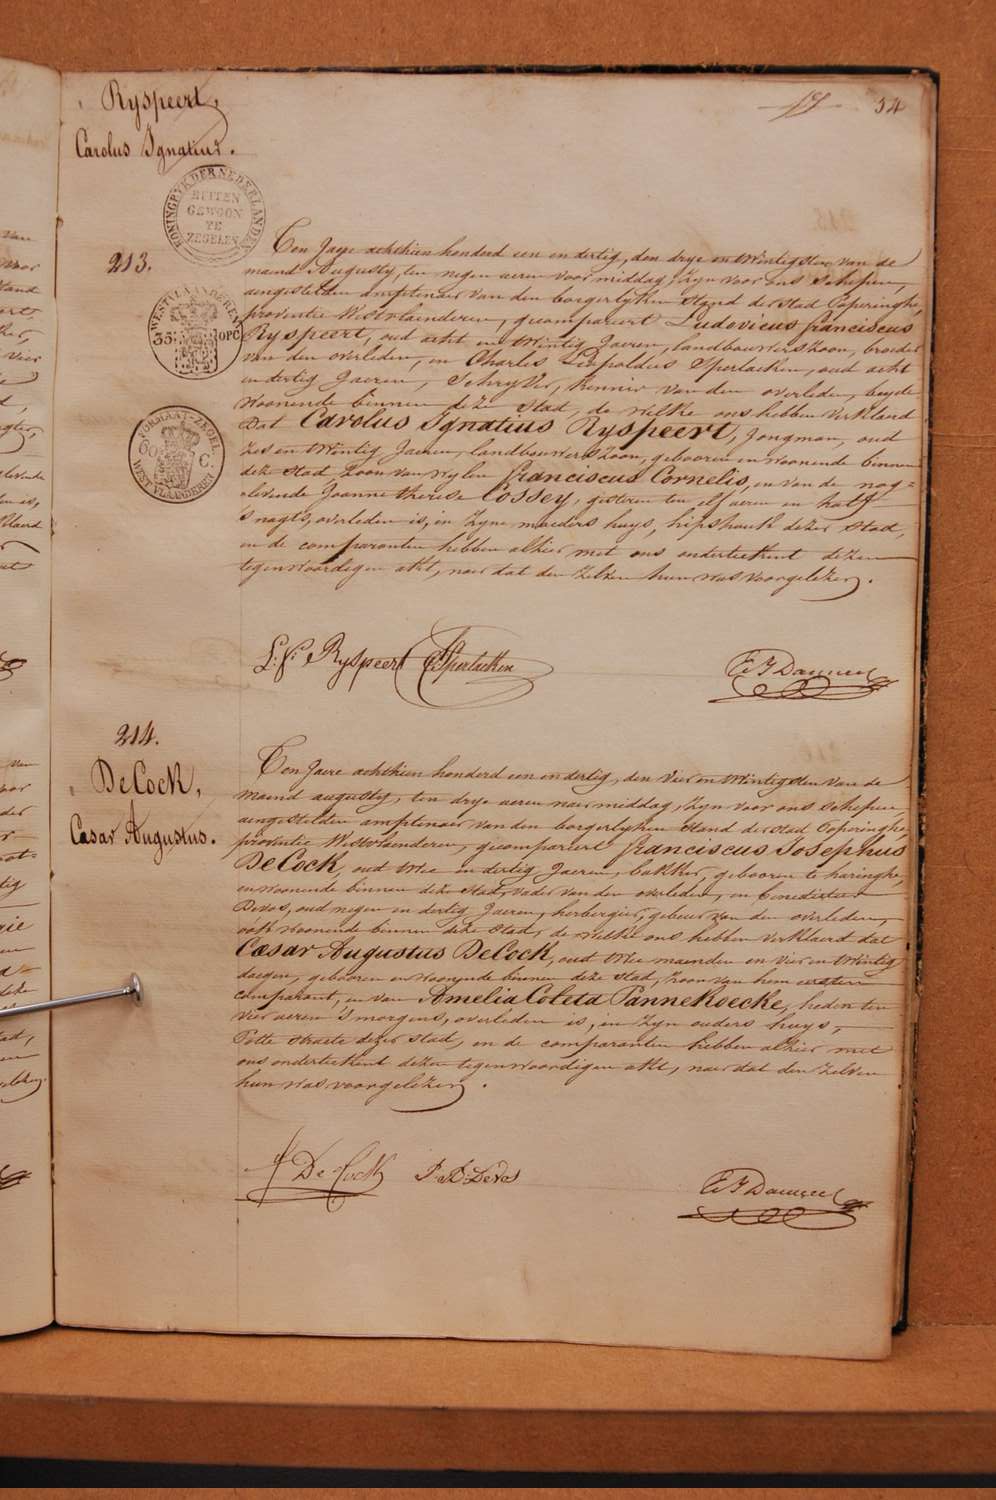 Ryspeert,
Carolus Ignatius.
17 54
KONINGRYK DER NEDERLANDEN
BUITEN
GEWOON
TE
ZEGELEN
213.
WEST-VLAANDEREN
35 OPC
FORMAAT-ZEGEL
60 C.
WEST VLAANDEREN
Ten Jaere achthien honderd een en dertig, den drye en twintigsten van de
maend Augusty, ten negen ueren voor middag, zyn voor ons Schepen,
aengestelden amptenaer van den borgerlyken stand der stad Poperinghe,
provintie Westvlaenderen, gecompareert Ludovicus franciscus
Ryspeert, oud acht en twintig Jaeren, landbouwers zoon, broeder
van den overleden, en Charles Leopoldus Sperlaeken, oud acht
en dertig Jaeren, Schryver, kennis van den overleden, beyde
woonende binnen deze Stad, de welke ons hebben verklaerd
Dat Carolus Ignatius Ryspeert, Jongman, oud
zes en twintig Jaeren, landbouwers zoon, gebooren en woonende binnen
deze Stad, zoon van wylen franciscus Cornelis, en van de nog=
=levende Joanne therese Cossey, gisteren ten elf ueren en half
's nagts, overleden is, in zyne moeders huys, hipshouk dezer Stad,
en de comparanten hebben alhier met ons onderteekent dezen
tegenwoordigen akt, naer dat den zelven hun was voorgelezen.
L: f: Ryspeert C Sperlaeken
214.
De Cock,
Cæsar Augustus.
Ten Jaere achthien honderd een en dertig, den vier en twintigsten van de
maend augusty, ten drye ueren naer middag, zyn voor ons schepen,
aengestelden amptenaer van den borgerlyken stand der stad Poperinghe,
provintie Westvlaenderen, gecompareert franciscus Josephus
De Cock, oud twee en dertig Jaeren, bakker, gebooren te haringhe,
en woonende binnen deze Stad, vader van den overleden, en benedictus
Devos, oud negen en dertig Jaeren, herbergier, gebeur van den overleden,
ook woonende binnen deze Stad, de welke ons hebben verklaerd dat
Cæsar Augustus De Cock, oud twee maenden en vier en twintig
daegen, gebooren en woonende binnen deze stad, zoon van hem eersten
comparant, en van Amelia Coleta Pannekoecke, heden ten
vier ueren 's morgens, overleden is, in zyn ouders huys,
Potte Straete dezer stad, en de comparanten hebben alhier met
ons onderteekent dezen tegenwoordigen akt, naer dat den zelven
hun was voorgelezen.
f De Cock P. B: Devos